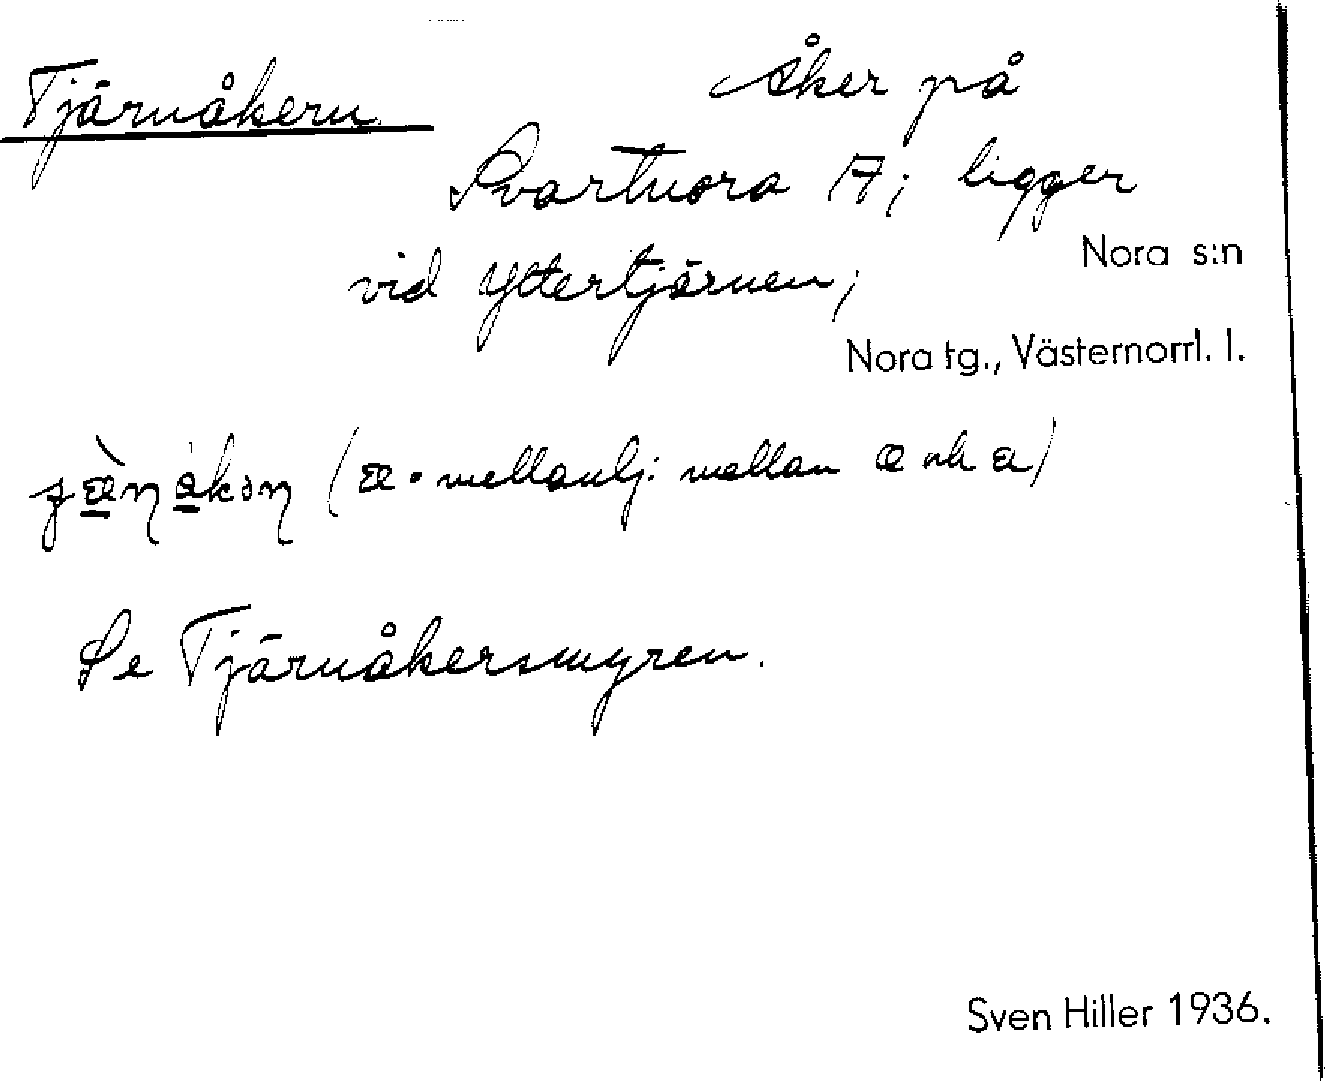 Tjärnåkern Åker på
Svartnora 17; ligger
Nora s:n
vid Yttertjärnen;
Nora tg., Västernorrl. l.
(æ = mellanlj. mellan æ och a)
Se Tjärnåkersmyren.
Sven Hiller 1936.